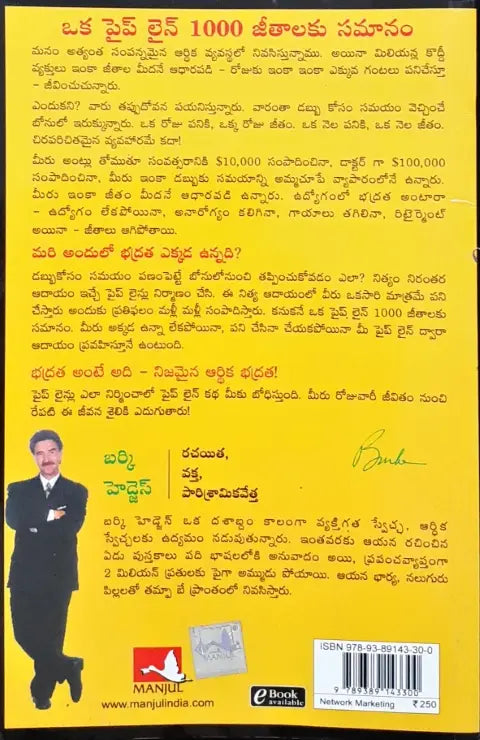 ఒక పైప్ లైన్ 1000 జీతాలకు సమానం
మనం అత్యంత సంపన్నమైన ఆర్థిక వ్యవస్థలో నివసిస్తున్నాము. అయినా మిలియన్ల కొద్దీ
వ్యక్తులు ఇంకా జీతాల మీదనే ఆధారపడి – రోజుకు ఇంకా ఇంకా ఎక్కువ గంటలు పనిచేస్తూ
– జీవించుచున్నారు.
ఎందుకని? వారు తప్పుదోవన పయనిస్తున్నారు. వారంతా డబ్బు కోసం సమయం వెచ్చించే
బోనులో ఇరుక్కున్నారు. ఒక రోజు పనికి, ఒక్క రోజు జీతం. ఒక నెల పనికి, ఒక నెల జీతం.
చిరపరిచితమైన వ్యవహారమే కదా!
మీరు అంట్లు తోముతూ సంవత్సరానికి $10,000 సంపాదించినా, డాక్టర్ గా $100,000
సంపాదించినా, మీరు ఇంకా డబ్బుకు సమయాన్ని అమ్మచూపే వ్యాపారంలోనే ఉన్నారు.
మీరు ఇంకా జీతం మీదనే ఆధారపడి ఉన్నారు. ఉద్యోగంలో భద్రత అంటారా
– ఉద్యోగం లేకపోయినా, అనారోగ్యం కలిగినా, గాయాలు తగిలినా, రిటైర్మెంట్
అయినా – జీతాలు ఆగిపోతాయి.
మరి అందులో భద్రత ఎక్కడ ఉన్నది?
డబ్బుకోసం సమయం పణంపెట్టే బోనులోనుంచి తప్పించుకోవడం ఎలా? నిత్యం నిరంతర
ఆదాయం ఇచ్చే పైప్ లైన్లు నిర్మాణం చేసి. ఈ నిత్య ఆదాయంలో వీరు ఒకసారి మాత్రమే పని
చేస్తారు అందుకు ప్రతిఫలం మళ్లీ మళ్లీ సంపాదిస్తారు. కనుకనే ఒక పైప్ లైన్ 1000 జీతాలకు
సమానం. మీరు అక్కడ ఉన్నా లేకపోయినా, పని చేసినా చేయకపోయినా మీ పైప్ లైన్ ద్వారా
ఆదాయం ప్రవహిస్తూనే ఉంటుంది.
భద్రత అంటే అది – నిజమైన ఆర్థిక భద్రత!
పైప్ లైన్లు ఎలా నిర్మించాలో పైప్ లైన్ కథ మీకు బోధిస్తుంది. మీరు రోజువారీ జీవితం నుంచి
రేపటి ఈ జీవన శైలికి ఎదుగుతారు!
బర్కి
హెడ్జెస్
రచయిత,
వక్త,
పారిశ్రామికవేత్త
Burke
బర్కి హెడ్జెస్ ఒక దశాబ్దం కాలంగా వ్యక్తిగత స్వేచ్ఛ, ఆర్థిక
స్వేచ్ఛలకు ఉద్యమం నడుపుతున్నారు. ఇంతవరకు ఆయన రచించిన
ఏడు పుస్తకాలు పది భాషలలోకి అనువాదం అయి, ప్రపంచవ్యాప్తంగా
2 మిలియన్ ప్రతులకు పైగా అమ్ముడు పోయాయి. ఆయన భార్య, నలుగురు
పిల్లలతో తమ్పా బే ప్రాంతంలో నివసిస్తారు.
MANJUL
www.manjulindia.com
eBook
available
ISBN 978-93-89143-30-0
9 789389 143300
Network Marketing ₹250